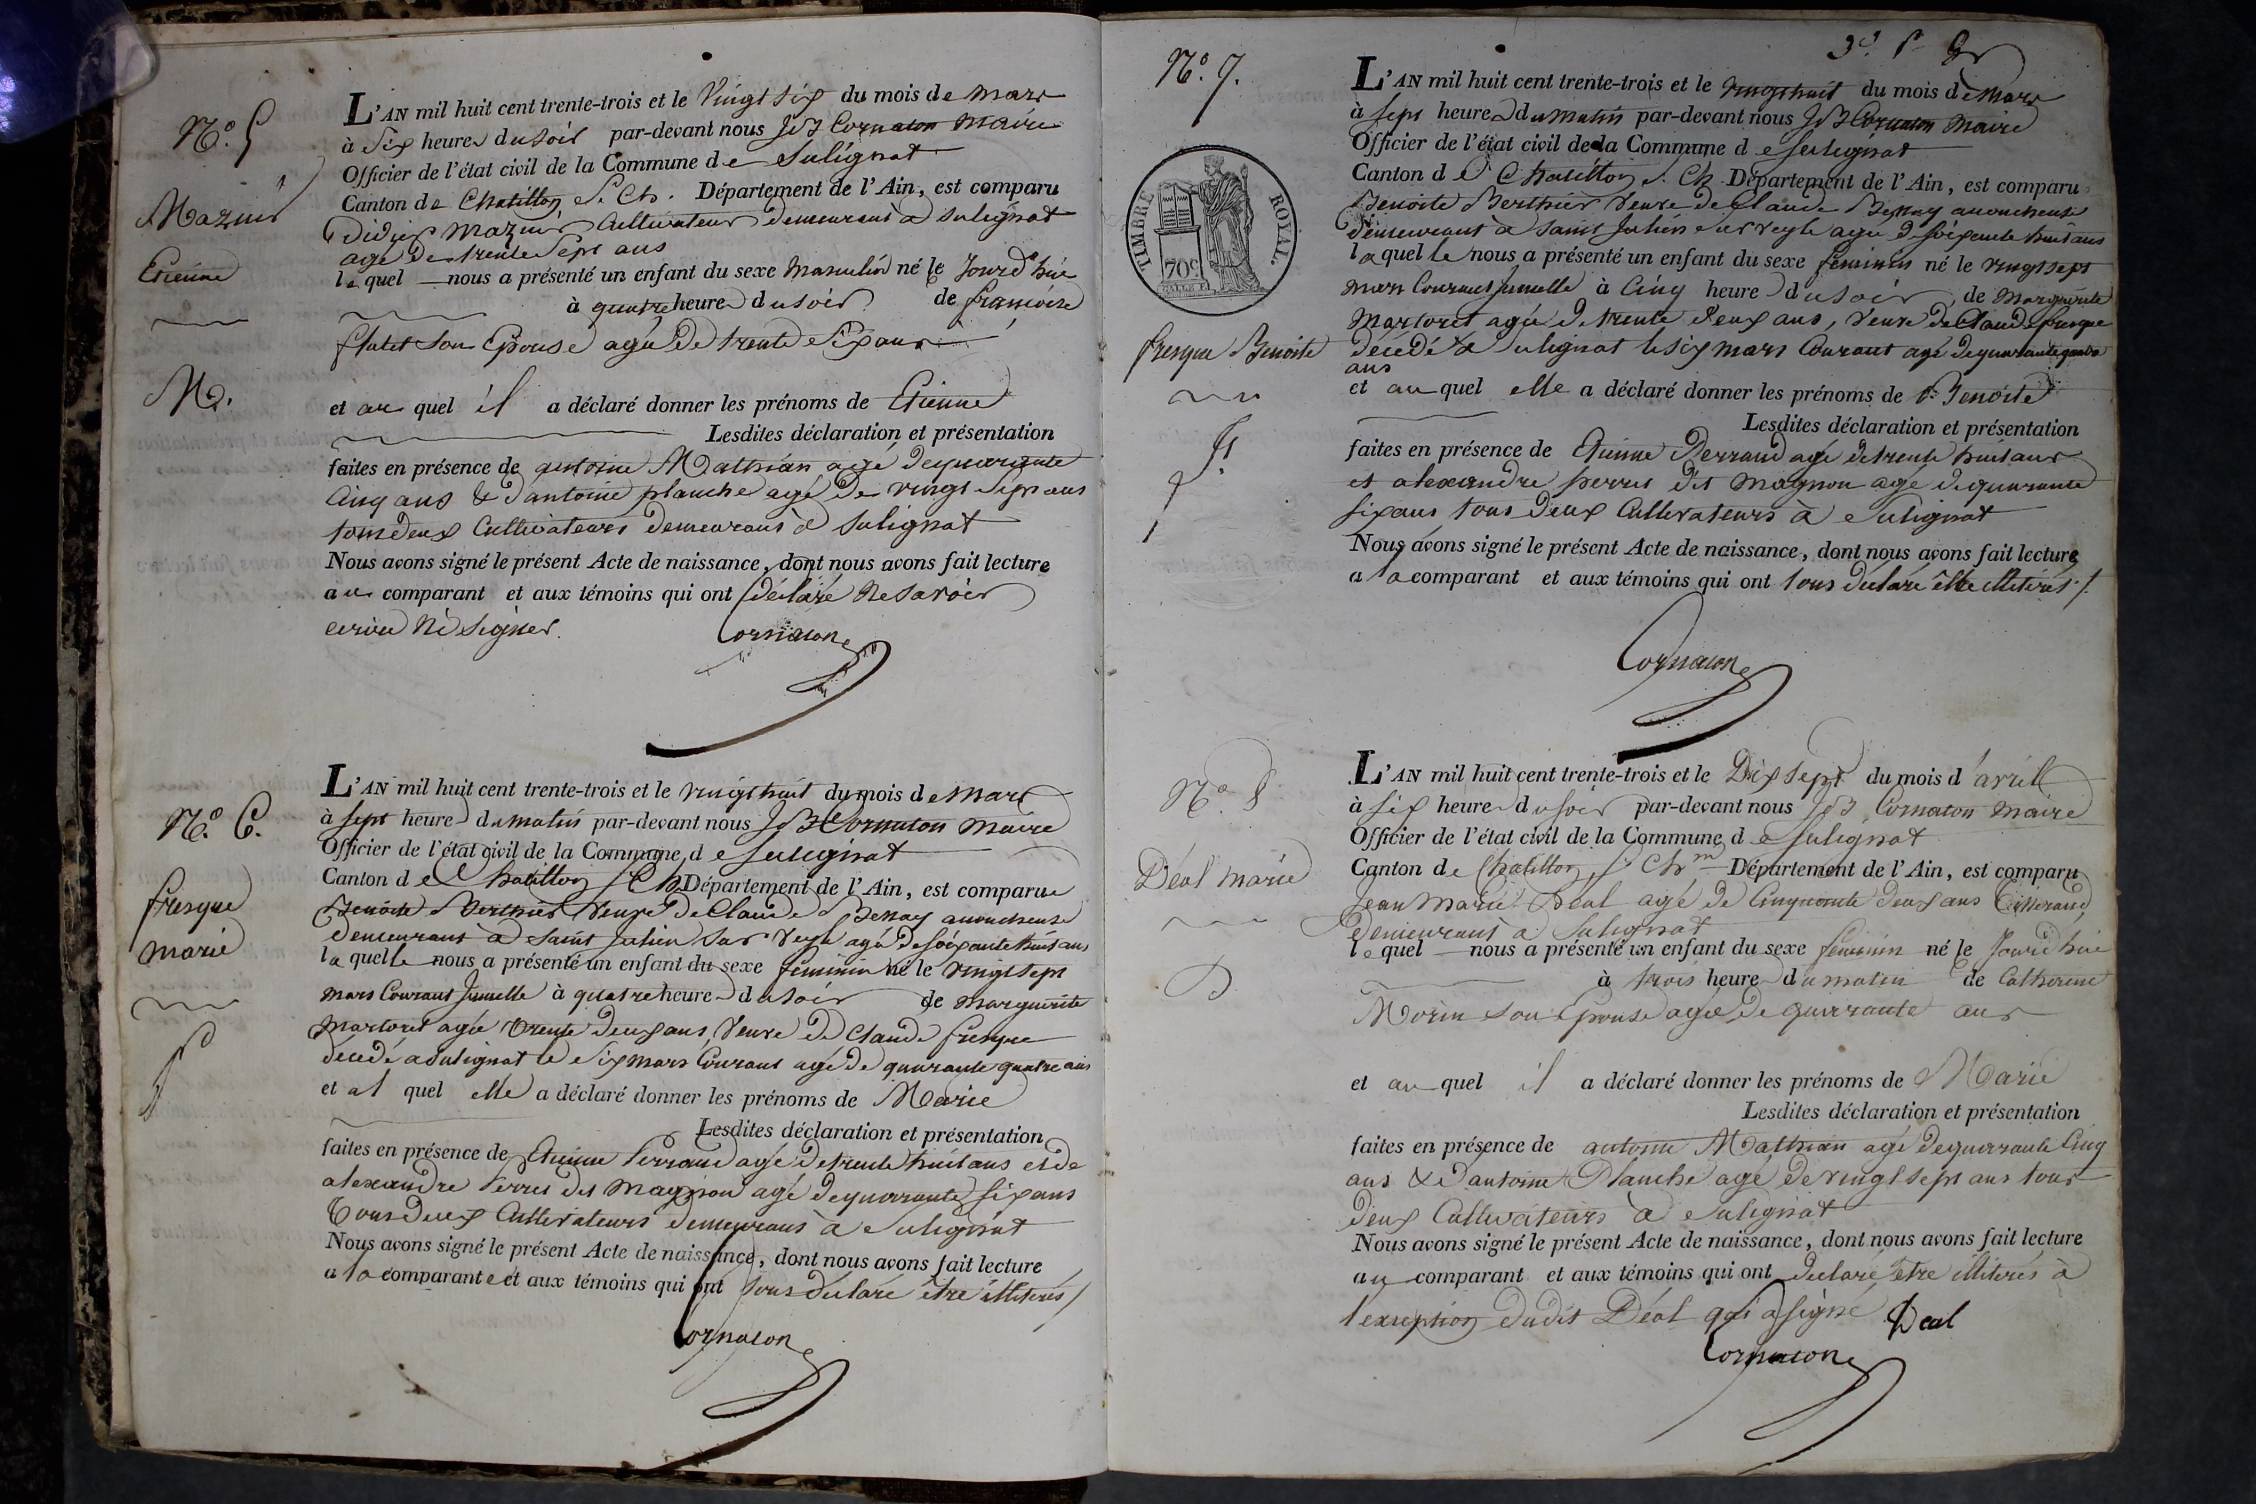 N.o 5
Mazuir
Etienne
M.
L'AN mil huit cent trente-trois et le Vingt six du mois de mars
à Six heures du soir par-devant nous J B Cornaton Maire
Officier de l'état civil de la Commune de Sulignat
Canton de Chatillon S. Ch. Département de l'Ain, est comparu
Didier Mazuir Cultivateur demeurant à Sulignat
agé de trente Sept ans
lequel nous a présenté un enfant du sexe Masculin né le Jourd'hui
à quatre heures du soir de françoise
son Epouse agée de trente Six ans
et au quel il a déclaré donner les prénoms de Etienne
Lesdites déclaration et présentation
faites en présence de antoine Mathian agé de quarante
Cinq ans & d'antoine planche agé de vingt Sept ans
tous deux Cultivateurs demeurant à Sulignat
Nous avons signé le présent Acte de naissance, dont nous avons fait lecture
au comparant et aux témoins qui ont déclaré ne savoir
ecrire ni signer. Cornaton
N.o 6.
fresque
marie
f
L'AN mil huit cent trente-trois et le vingt huit du mois de Mars
à sept heures du matin par-devant nous J B Cornaton Maire
Officier de l'état civil de la Commune de Sulignat
Canton de Chatillon S Ch Département de l'Ain, est comparue
Benoite Berthier Veuve de Claude Bernay accoucheuse
demeurant à Saint Julien sur Veyle agée de soixante huit ans
laquelle nous a présenté un enfant du sexe féminin né le vingt sept
mars Courant Jumelle à quatre heures du soir de marguerite
Martoret agée trente deux ans, Veuve de Claude fresque
décédé a Sulignat le Six mars Courant agé de quarante quatre ans
et al quel elle a déclaré donner les prénoms de Marie
Lesdites déclaration et présentation
faites en présence de Etienne Perraud agé de trente huit ans et de
alexandre Perret dit Magnon agé de quarante six ans
Tous deux Cultivateurs demeurant à Sulignat
Nous avons signé le présent Acte de naissance, dont nous avons fait lecture
a la comparante et aux témoins qui ont tous déclaré être illiterés
Cornaton
N.o 7.
TIMBRE ROYAL.
70c
fresque Benoite
f
L'AN mil huit cent trente-trois et le vingt huit du mois de Mars
à sept heures du matin par-devant nous J B Cornaton Maire
Officier de l'état civil de la Commune de Sulignat
Canton de Chatillon S. Ch Département de l'Ain, est comparu
Benoite Berthier Veuve de Claude Bernay accoucheuse
demeurant à Saint Julien sur veyle agée de soixante huit ans
laquelle nous a présenté un enfant du sexe féminin né le vingt sept
mars Courant Jumelle à Cinq heures du soir de Marguerite
Martoret agée de trente deux ans, Veuve de Claude fresque
décédé à Sulignat le six mars Courant agé de quarante quatre
ans
et au quel elle a déclaré donner les prénoms de Benoite
Lesdites déclaration et présentation
faites en présence de Etienne Perraud agé de trente huit ans
et alexandre perret dit Magnon agé de quarante
six ans tous deux Cultivateurs à Sulignat
Nous avons signé le présent Acte de naissance, dont nous avons fait lecture
a la comparant et aux témoins qui ont tous déclaré être illiterés
Cornaton
N.o 8
Déal marie
D
L'AN mil huit cent trente-trois et le Dix sept du mois d'avril
à six heures du soir par-devant nous J B Cornaton Maire
Officier de l'état civil de la Commune de Sulignat
Canton de Chatillon S Ch.m Département de l'Ain, est comparu
Jean Marie Déal agé de Cinquante deux ans Tisserand
demeurant à Sulignat
lequel nous a présenté un enfant du sexe féminin né le Jourd'hui
à trois heures du matin de Catherine
Morin son Epouse agée de quarante ans
et au quel il a déclaré donner les prénoms de Marie
Lesdites déclaration et présentation
faites en présence de antoine Mathian agé de quarante Cinq
ans & d'antoine Planche agé de vingt sept ans tous
deux Cultivateurs à Sulignat
Nous avons signé le présent Acte de naissance, dont nous avons fait lecture
au comparant et aux témoins qui ont declaré être illiterés à
l'exception dudit Déal qui a signé Deal
Cornaton